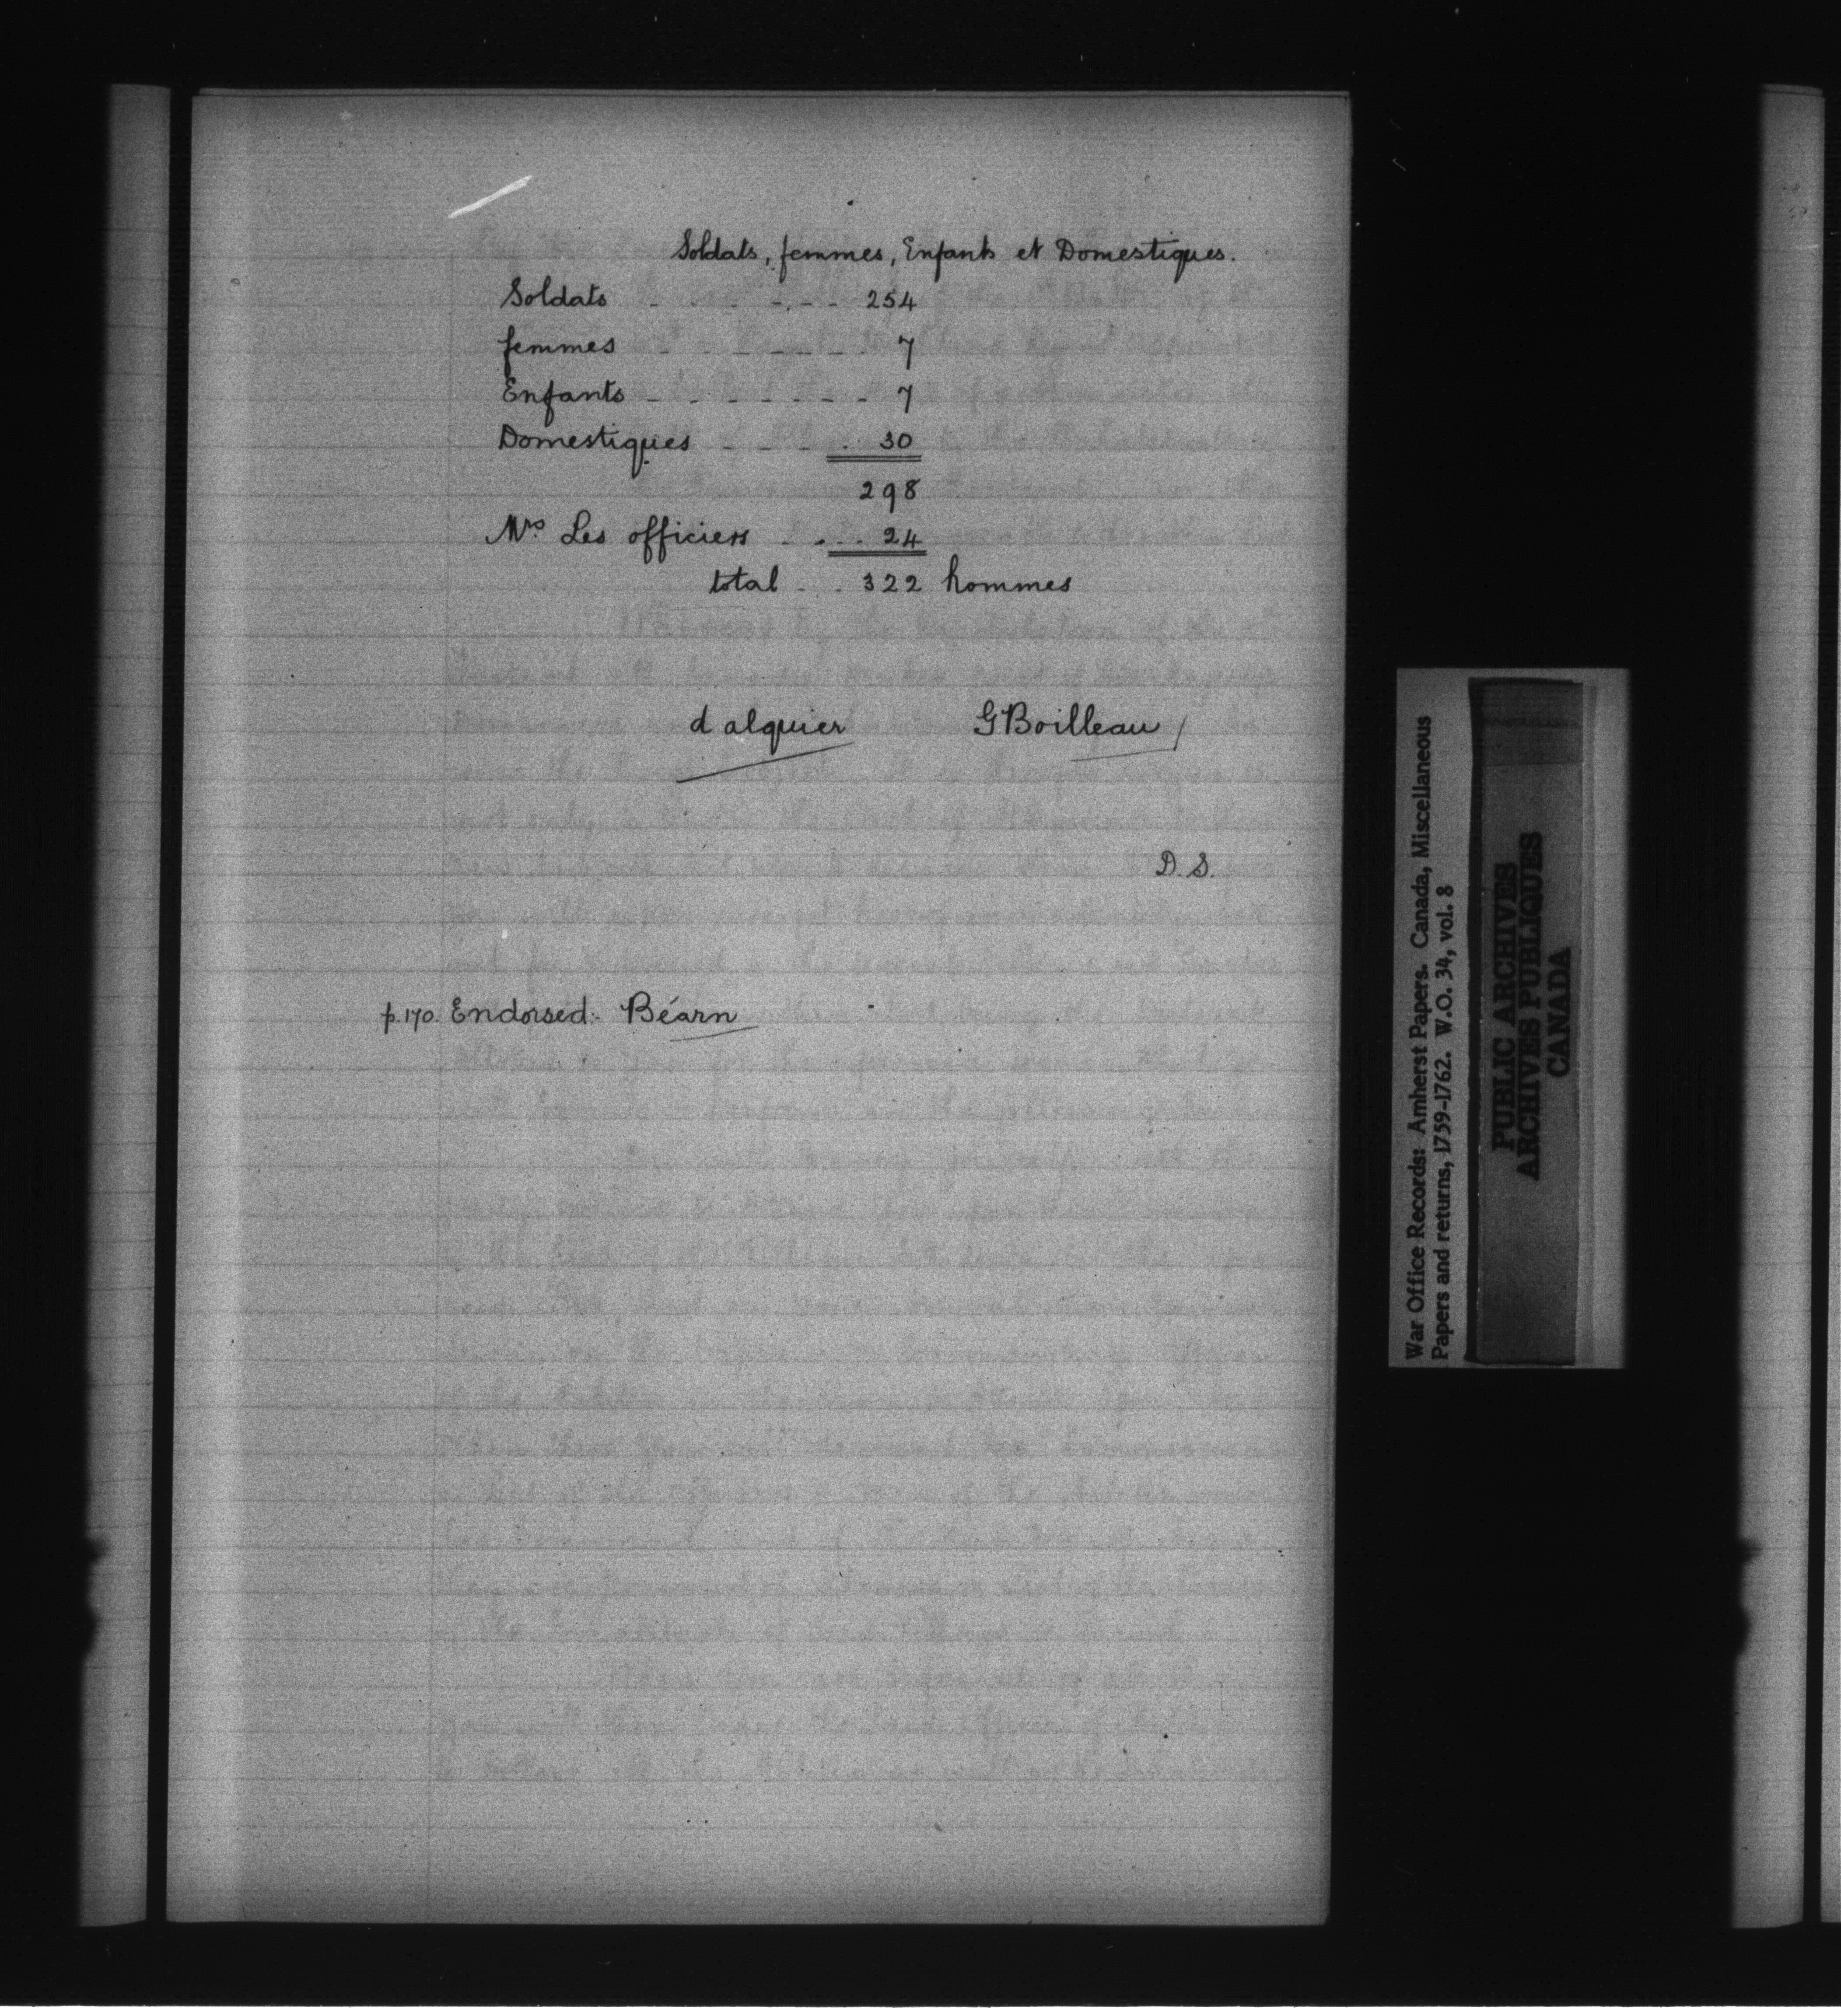 Soldats, femmes, Enfants et Domestiques.
Soldats - - - - . - - 254
femmes - - - - - - - 7
Enfants - - - - - - - 7
Domestiques - - - . 30
298
Mrs. Les officiers - . . . 24
total - . . 322 hommes
d alquier GBoilleau /
D. S.
p. 170. Endorsed:- Béarn
War Office Records: Amherst Papers. Canada, Miscellaneous
Papers and returns, 1759-1762. W.O. 34, vol. 8
PUBLIC ARCHIVES
ARCHIVES PUBLIQUES
CANADA